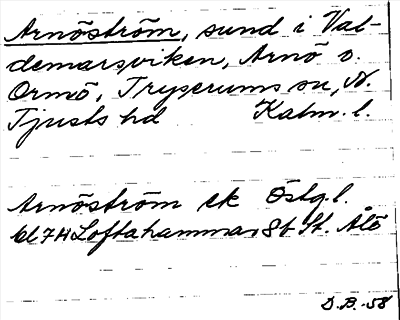 Arnöström, sund i Val-
demarsviken, Arnö o.
Ormö, Tryserums sn, N.
Tjusts hd Kalm. l.
Arnöström ek Östg. l.
bl 74 Loftahammar 8b St. Ålö
D.B. -58